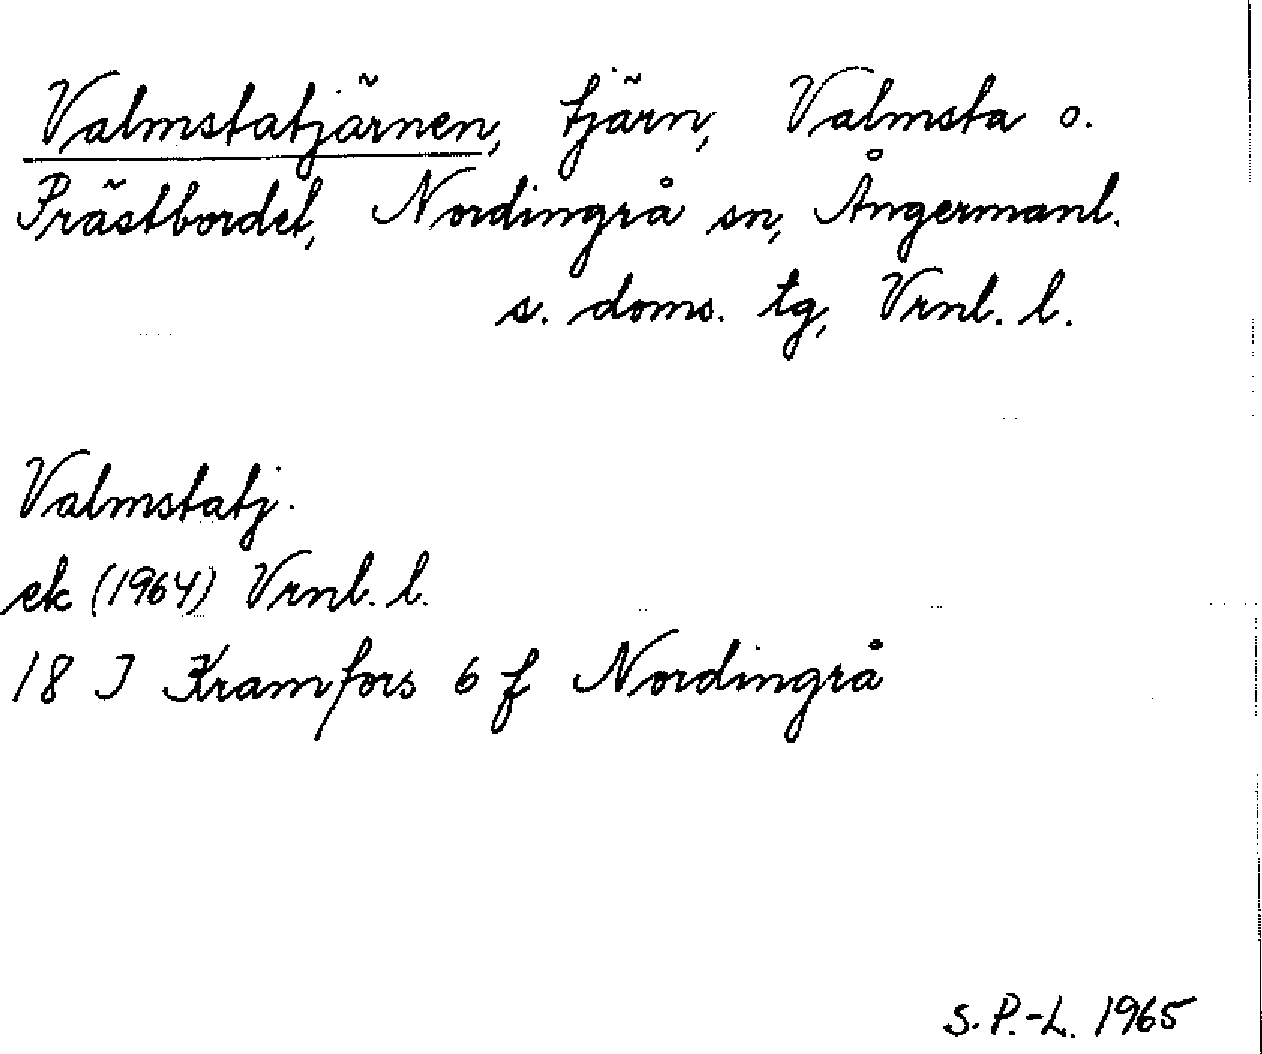 Valmstatjärnen, tjärn, Valmsta o.
Prästbordet, Nordingrå sn, Ångermanl.
s. doms. tg, Vrnl. l.
Valmstatj.
ek (1964) Vrnl. l.
18 J Kramfors 6 f Nordingrå
S. P.-L. 1965